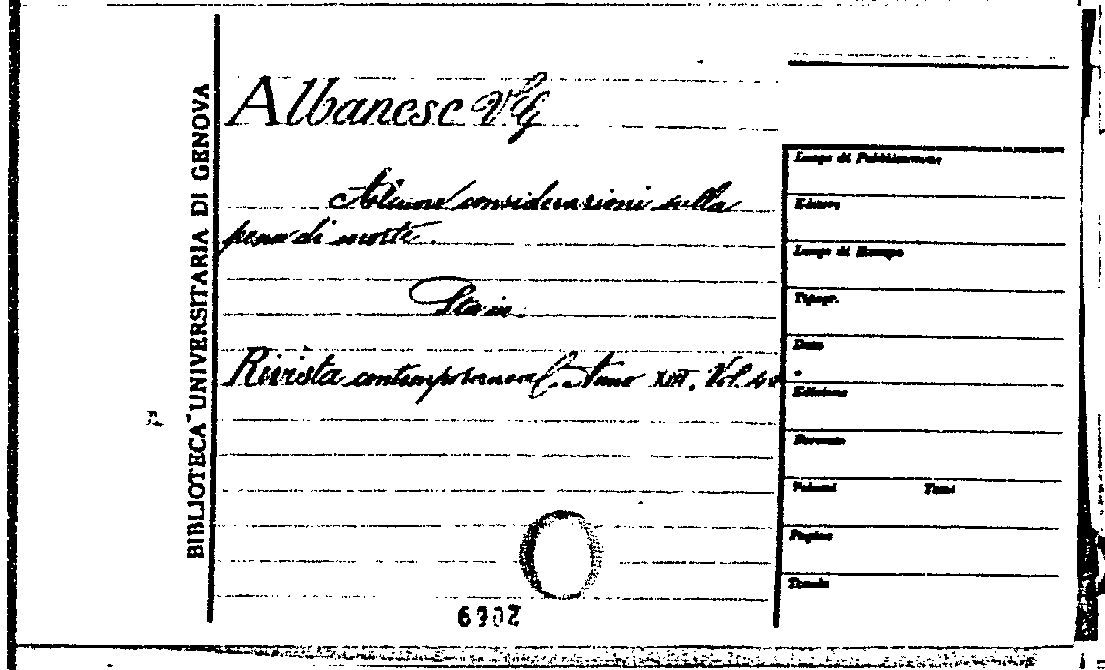 BIBLIOTECA UNIVERSITARIA DI GENOVA
Albanese V. G.
Alcune considerazioni sulla
pena di morte.
Sta in:
Rivista contemporanea. Anno XIII. Vol. 40.
Luogo di Pubblicazione
Editore
Luogo di Stampa
Tipogr.
Data
Edizione
Formato
Volumi Tomi
Pagine
Tavole